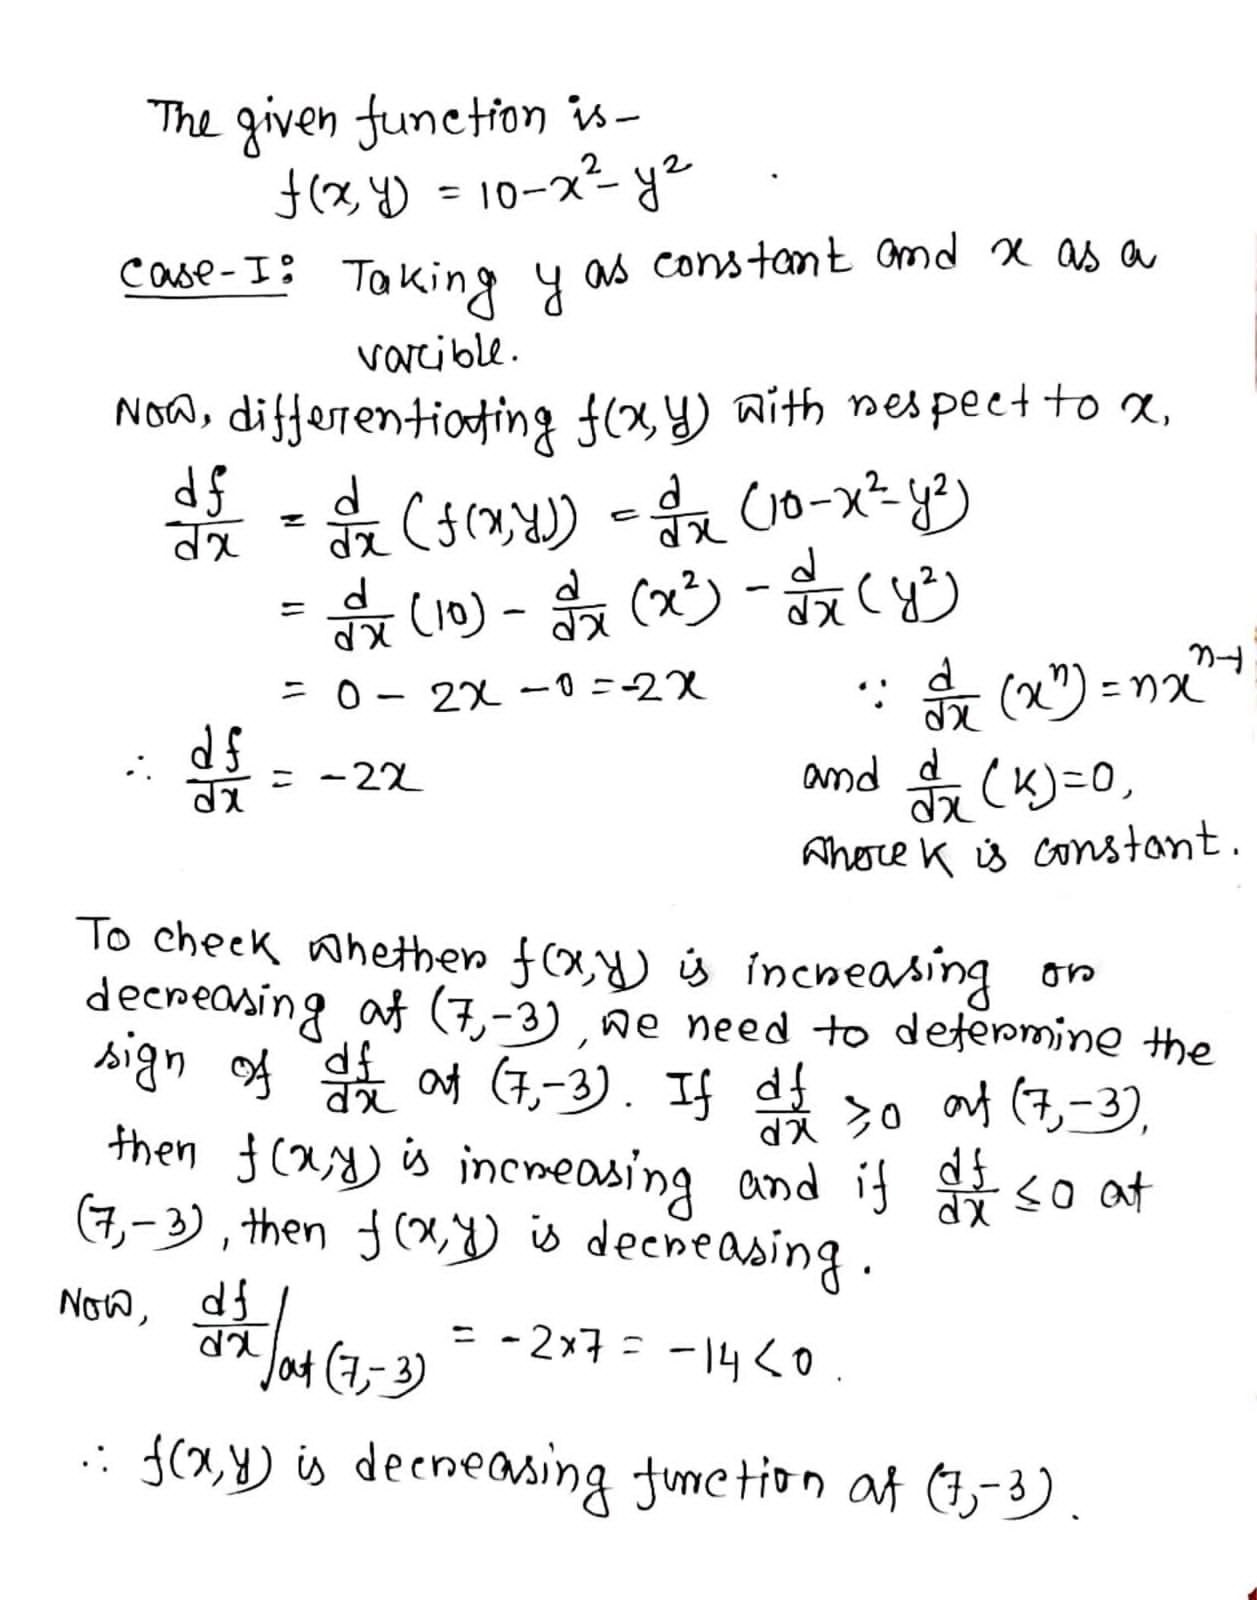 The given function is-
f(x,y) = 10-x²-y²
Case-I: Taking y as constant and x as a
varible.
Now, differentiating f(x,y) with respect to x,
df/dx = d/dx (f(x,y)) = d/dx (10-x²-y²)
= d/dx (10) - d/dx (x²) - d/dx (y²)
= 0 - 2x - 0 = -2x ∵ d/dx (xⁿ) = nxⁿ⁻¹
∴ df/dx = -2x and d/dx (k)=0,
where k is constant.
To check whether f(x,y) is increasing or
decreasing at (7,-3), we need to determine the
sign of df/dx at (7,-3). If df/dx ≥0 at (7,-3),
then f(x,y) is increasing and if df/dx ≤0 at
(7,-3), then f(x,y) is decreasing.
Now, df/dx / at (7,-3) = -2×7 = -14 <0.
∴ f(x,y) is decreasing function at (7,-3).